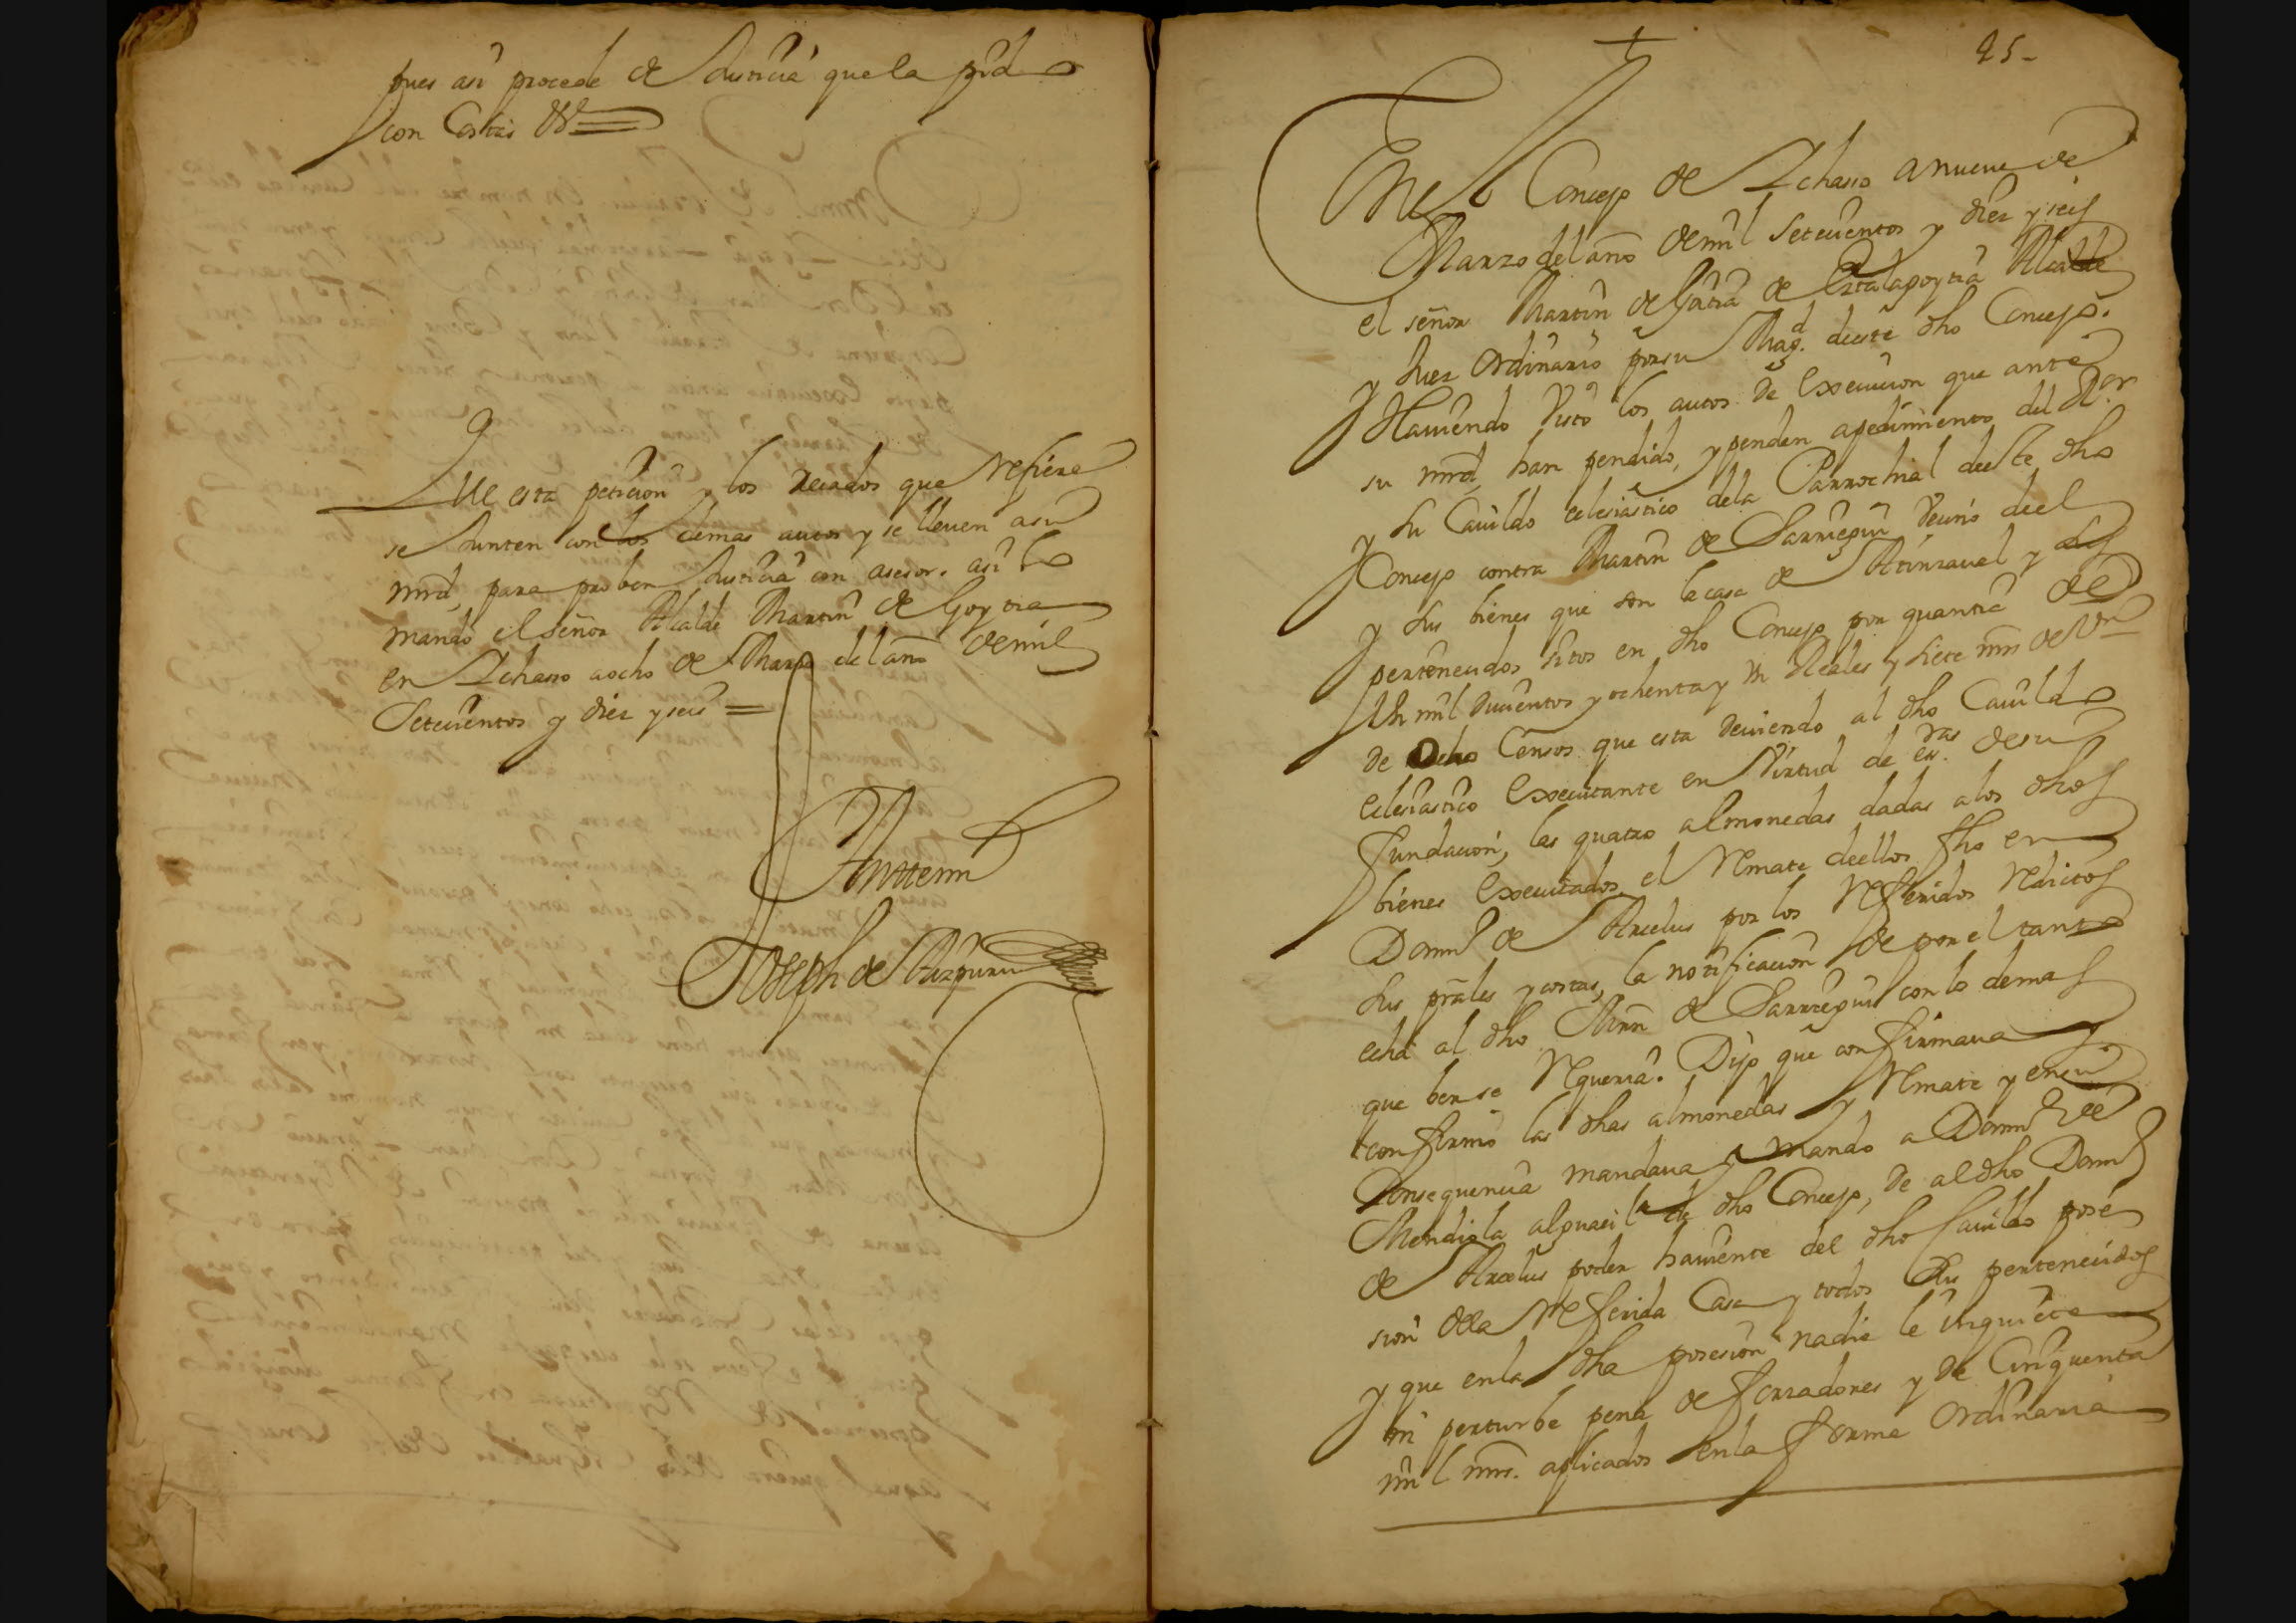 pues asi procede de Justicia que la pido
con Costas &ª
Que esta peticion y los recados que refiere
se Junten con los demas autos y se lleven a su
mrd, para prober Justicia con asesor. asi lo
mando el señor Alcalde Martin de Goytia
en Ichaso a ocho de Marzo del año de mil
Setecientos y diez y seis =
Antemi
Joseph de Aizpuru
25-
En el Concejo de Ichaso a nueve de
Marzo del año de mil Setecientos y diez y seis
el señor Martin de Goitia de Alcalde
y Juez ordinario por su Magd. deeste dho Concejo.
Haviendo Visto los autos de execucion que ante
su mrd, han pendido, y penden a pedimiento del Ror
y su Cavildo eclesiastico dela Parrochial deeste dho
Concejo contra Martin de Sarriegui Vecino deel
y sus bienes que son la casa de y sus
pertenecidos sitos en dho Concejo por quantia de
Un mil Ducientos y ochenta y un Reales y siete mrs de Vn
de Ocho Censos que esta deviendo al dho Cavildo
eclesiastico executante en Virtud de essras de su
fundacion, las quatro almonedas dadas alos dhos
bienes executados, el Remate deellos fho en
Domo de Arcelus por los referidos reditos
sus prales y costas, la notificacion de por el tanto
echa al dho Mrn de Sarriegui con lo demas
que berse requeria. Dijo que confirmava y
confirmo las dhas almonedas y Remate y en su
Consequencia mandava y mando a Domo de
Mendiola alguacil de dho Concejo, de al dho Domo
de Arcelus poder haviente del dho Cavildo pose
sion dela referida Casa y todos sus pertenecidos
y que en la dha posesion nadie le inquiete
ni perturbe pena de forzadores y de Cinquenta
mil mrs. aplicados en la forma ordinaria